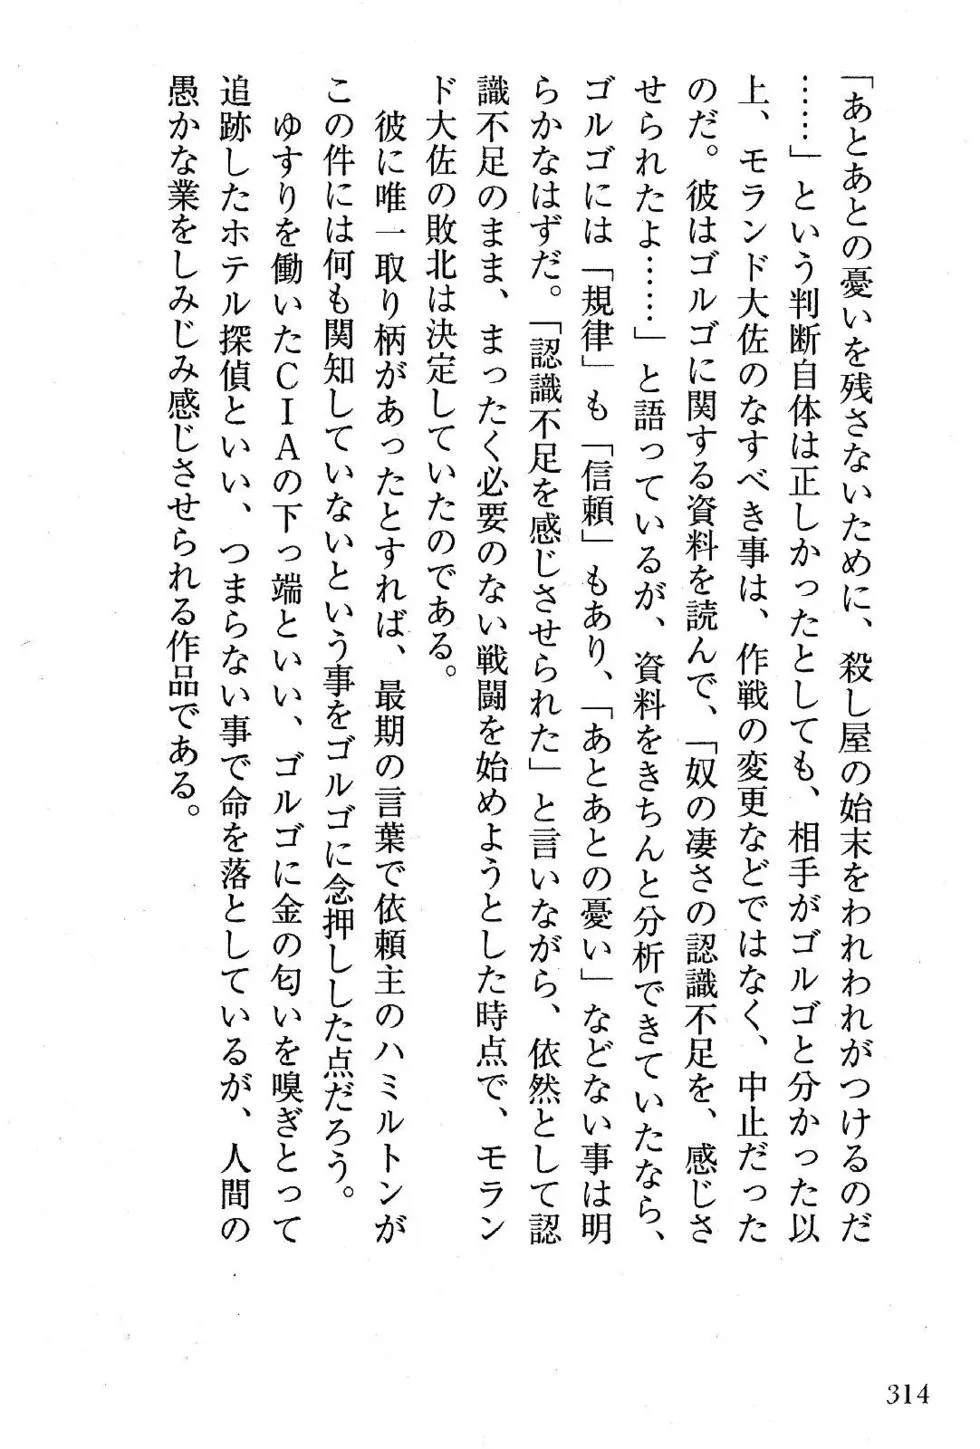 「あとあとの憂いを残さないために、殺し屋の始末をわれわれがつけるのだ
……」という判断自体は正しかったとしても、相手がゴルゴと分かった以
上、モランド大佐のなすべき事は、作戦の変更などではなく、中止だった
のだ。彼はゴルゴに関する資料を読んで、「奴の凄さの認識不足を、感じさ
せられたよ……」と語っているが、資料をきちんと分析できていたなら、
ゴルゴには「規律」も「信頼」もあり、「あとあとの憂い」などない事は明
らかなはずだ。「認識不足を感じさせられた」と言いながら、依然として認
識不足のまま、まったく必要のない戦闘を始めようとした時点で、モラン
ド大佐の敗北は決定していたのである。
彼に唯一取り柄があったとすれば、最期の言葉で依頼主のハミルトンが
この件には何も関知していないという事をゴルゴに念押しした点だろう。
ゆすりを働いたCIAの下っ端といい、ゴルゴに金の匂いを嗅ぎとって
追跡したホテル探偵といい、つまらない事で命を落としているが、人間の
愚かな業をしみじみ感じさせられる作品である。
314